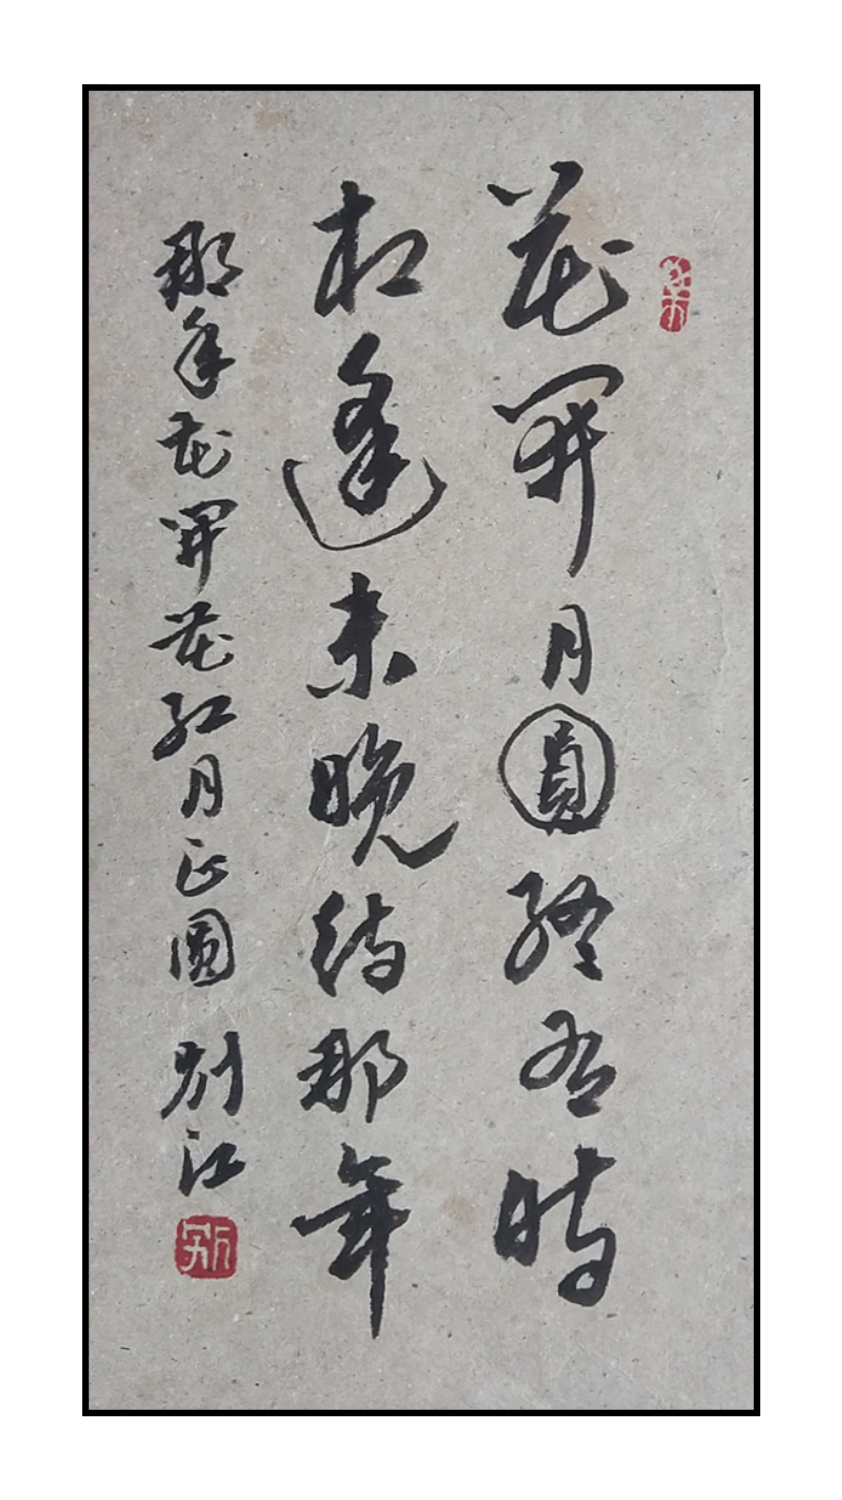 花開月圓終有時
相逢未晚待那年
那年花開花紅月正圓 別江